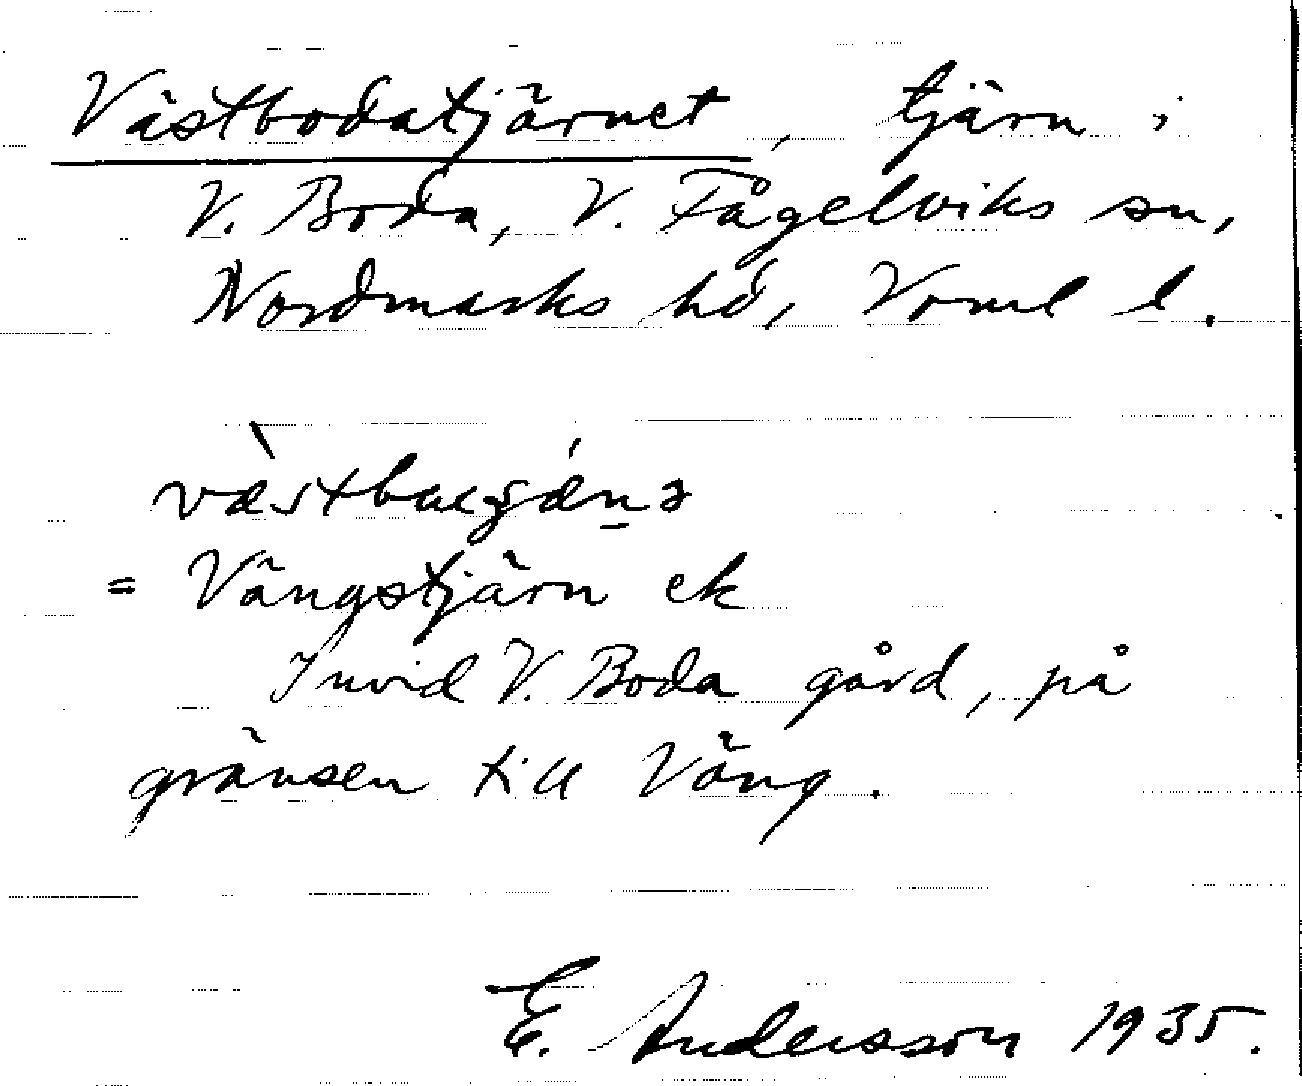 Västbodatjärnet, tjärn i
V. Boda, V. Fågelviks sn,
Nordmarks hd, Vrml l.
= Vängstjärn ek
Invid V. Boda gård, på
gränsen till Väng.
E. Andersson 1935.